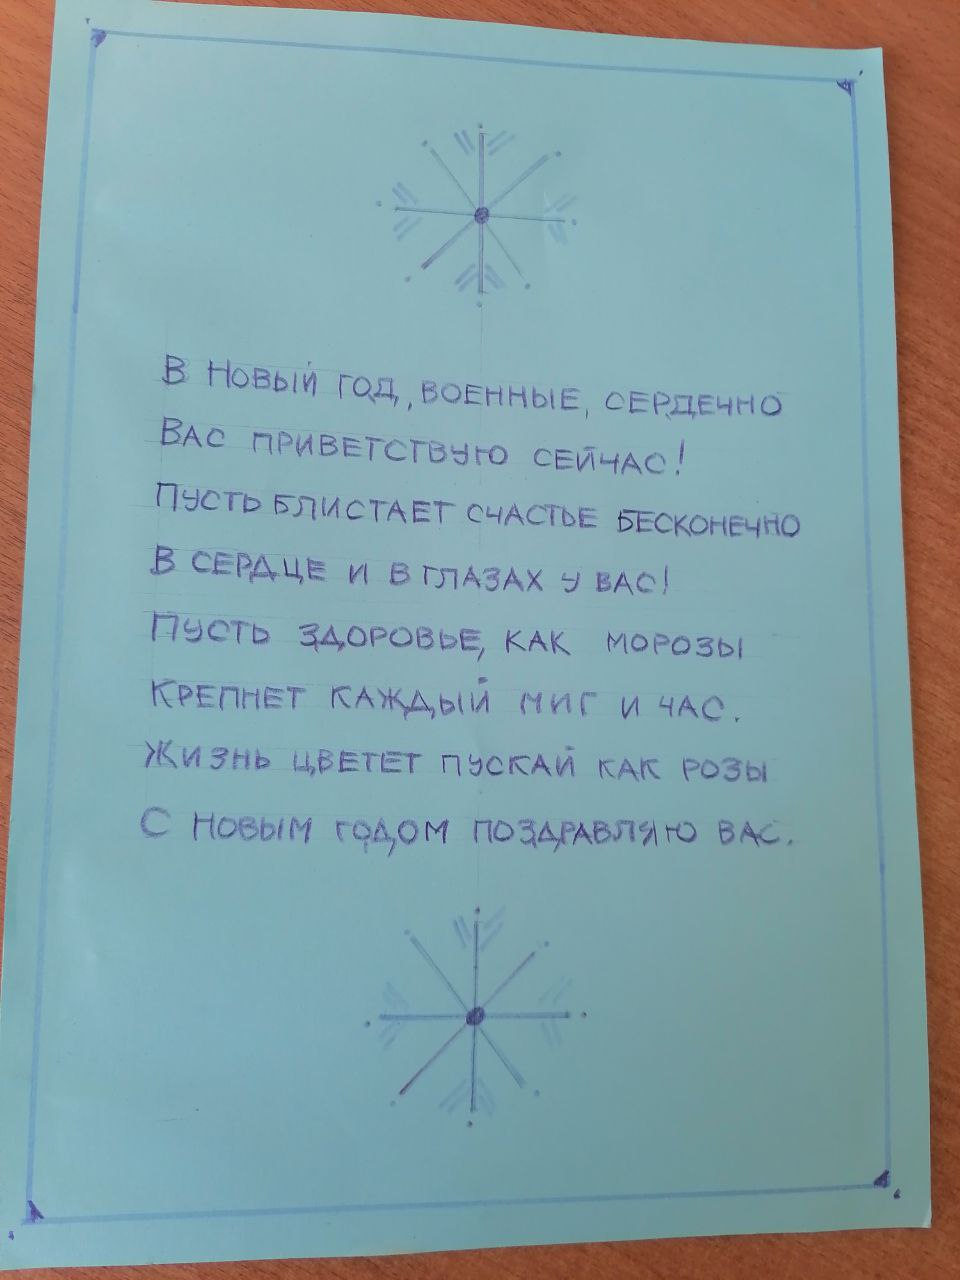 В Новый год, военные, сердечно
Вас приветствую сейчас!
Пусть блистает счастье бесконечно
В сердце и в глазах у вас!
Пусть здоровье, как морозы
Крепнет каждый миг и час.
Жизнь цветет пускай как розы
С новым годом поздравляю вас.